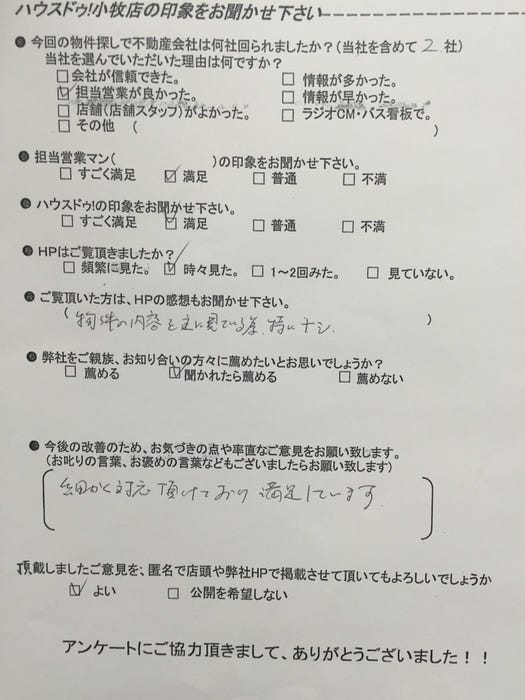 ハウスドゥ!小牧店の印象をお聞かせ下さい
今回の物件探しで不動産会社は何社回られましたか？(当社を含めて 2 社)
当社を選んでいただいた理由は何ですか？
□会社が信頼できた。 □ 情報が多かった。
☑担当営業が良かった。 □ 情報が早かった。
□店舗(店舗スタッフ)がよかった。 □ ラジオCM・バス看板で。
□その他 ( )
担当営業マン( )の印象をお聞かせ下さい。
□すごく満足 ☑ 満足 □ 普通 □ 不満
ハウスドゥ!の印象をお聞かせ下さい。
□すごく満足 ☑ 満足 □ 普通 □ 不満
HPはご覧頂きましたか？
□ 頻繁に見た。 ☑ 時々見た。 □ 1～2回みた。 □ 見ていない。
ご覧頂いた方は、HPの感想もお聞かせ下さい。
( 物件の内容を主に見ている為、特にナシ. )
弊社をご親族、お知り合いの方々に薦めたいとお思いでしょうか？
□ 薦める ☑聞かれたら薦める □ 薦めない
今後の改善のため、お気づきの点や率直なご意見をお願い致します。
(お叱りの言葉、お褒めの言葉などもございましたらお願い致します)
細かく対応頂けており 満足しています
頂戴しましたご意見を、匿名で店頭や弊社HPで掲載させて頂いてもよろしいでしょうか
☑ よい □ 公開を希望しない
アンケートにご協力頂きまして、ありがとうございました！！